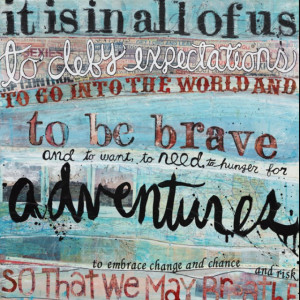 it is in all of us
to defy expectations
TO GO INTO THE WORLD AND
to be brave
and to want, to need, to hunger for
adventures
to embrace change and chance
and risk
SO THAT WE MAY BREATHE